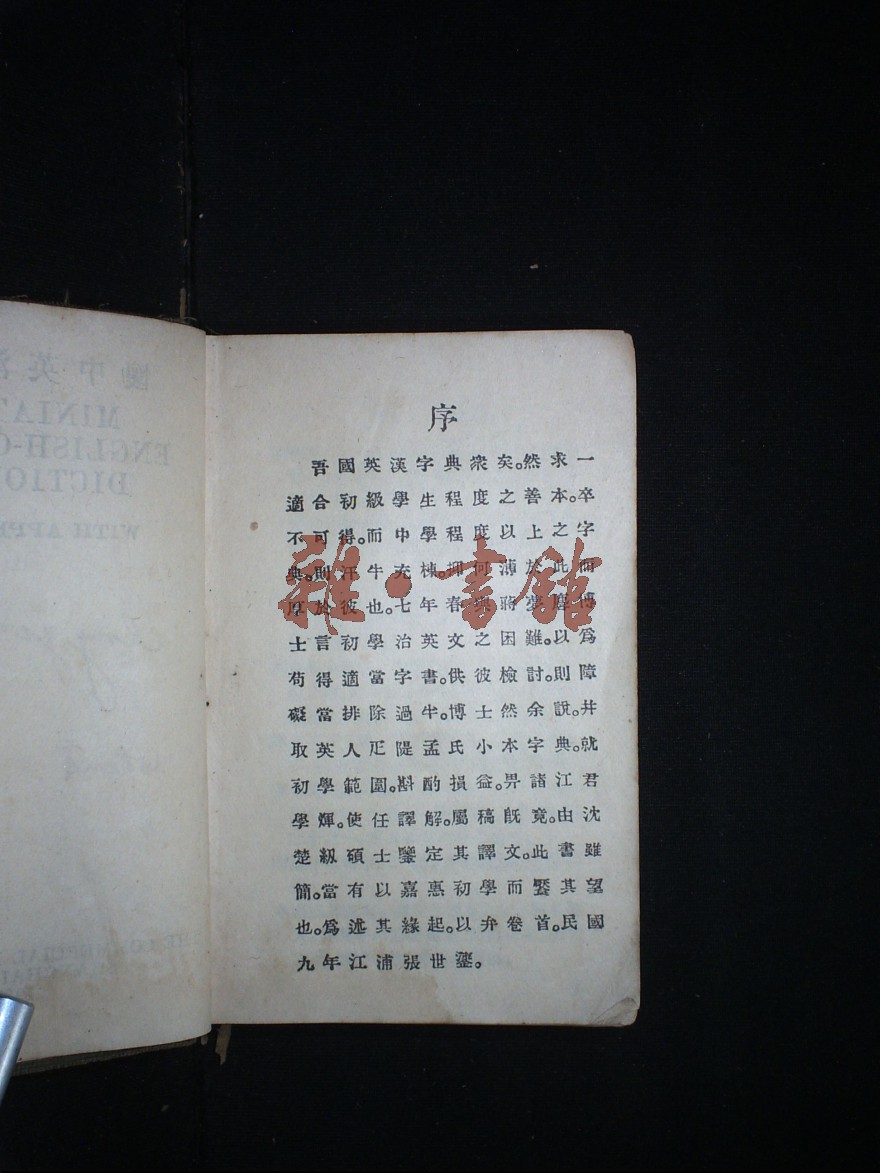 懷中英漢
MINIAT
ENGLISH-C
DICTION
WITH APPE
序
吾國英漢字典衆矣。然求一
適合初級學生程度之善本。卒
不可得。而中學程度以上之字
典。則汗牛充棟。揮何沛於此而
厚於彼也。七年春蔣夢麐博
士言初學治英文之困難。以爲
苟得適當字書。供彼檢討。則障
礙當排除過半。博士然余說。幷
取英人疋隄孟氏小本字典。就
初學範圍。斟酌損益。畀諸江君
學煇。使任譯解。屬稿旣竟。由沈
楚級碩士鑒定其譯文。此書雖
簡。當有以嘉惠初學而饜其望
也。爲述其緣起。以弁卷首。民國
九年江浦張世鎏。
雜·書館